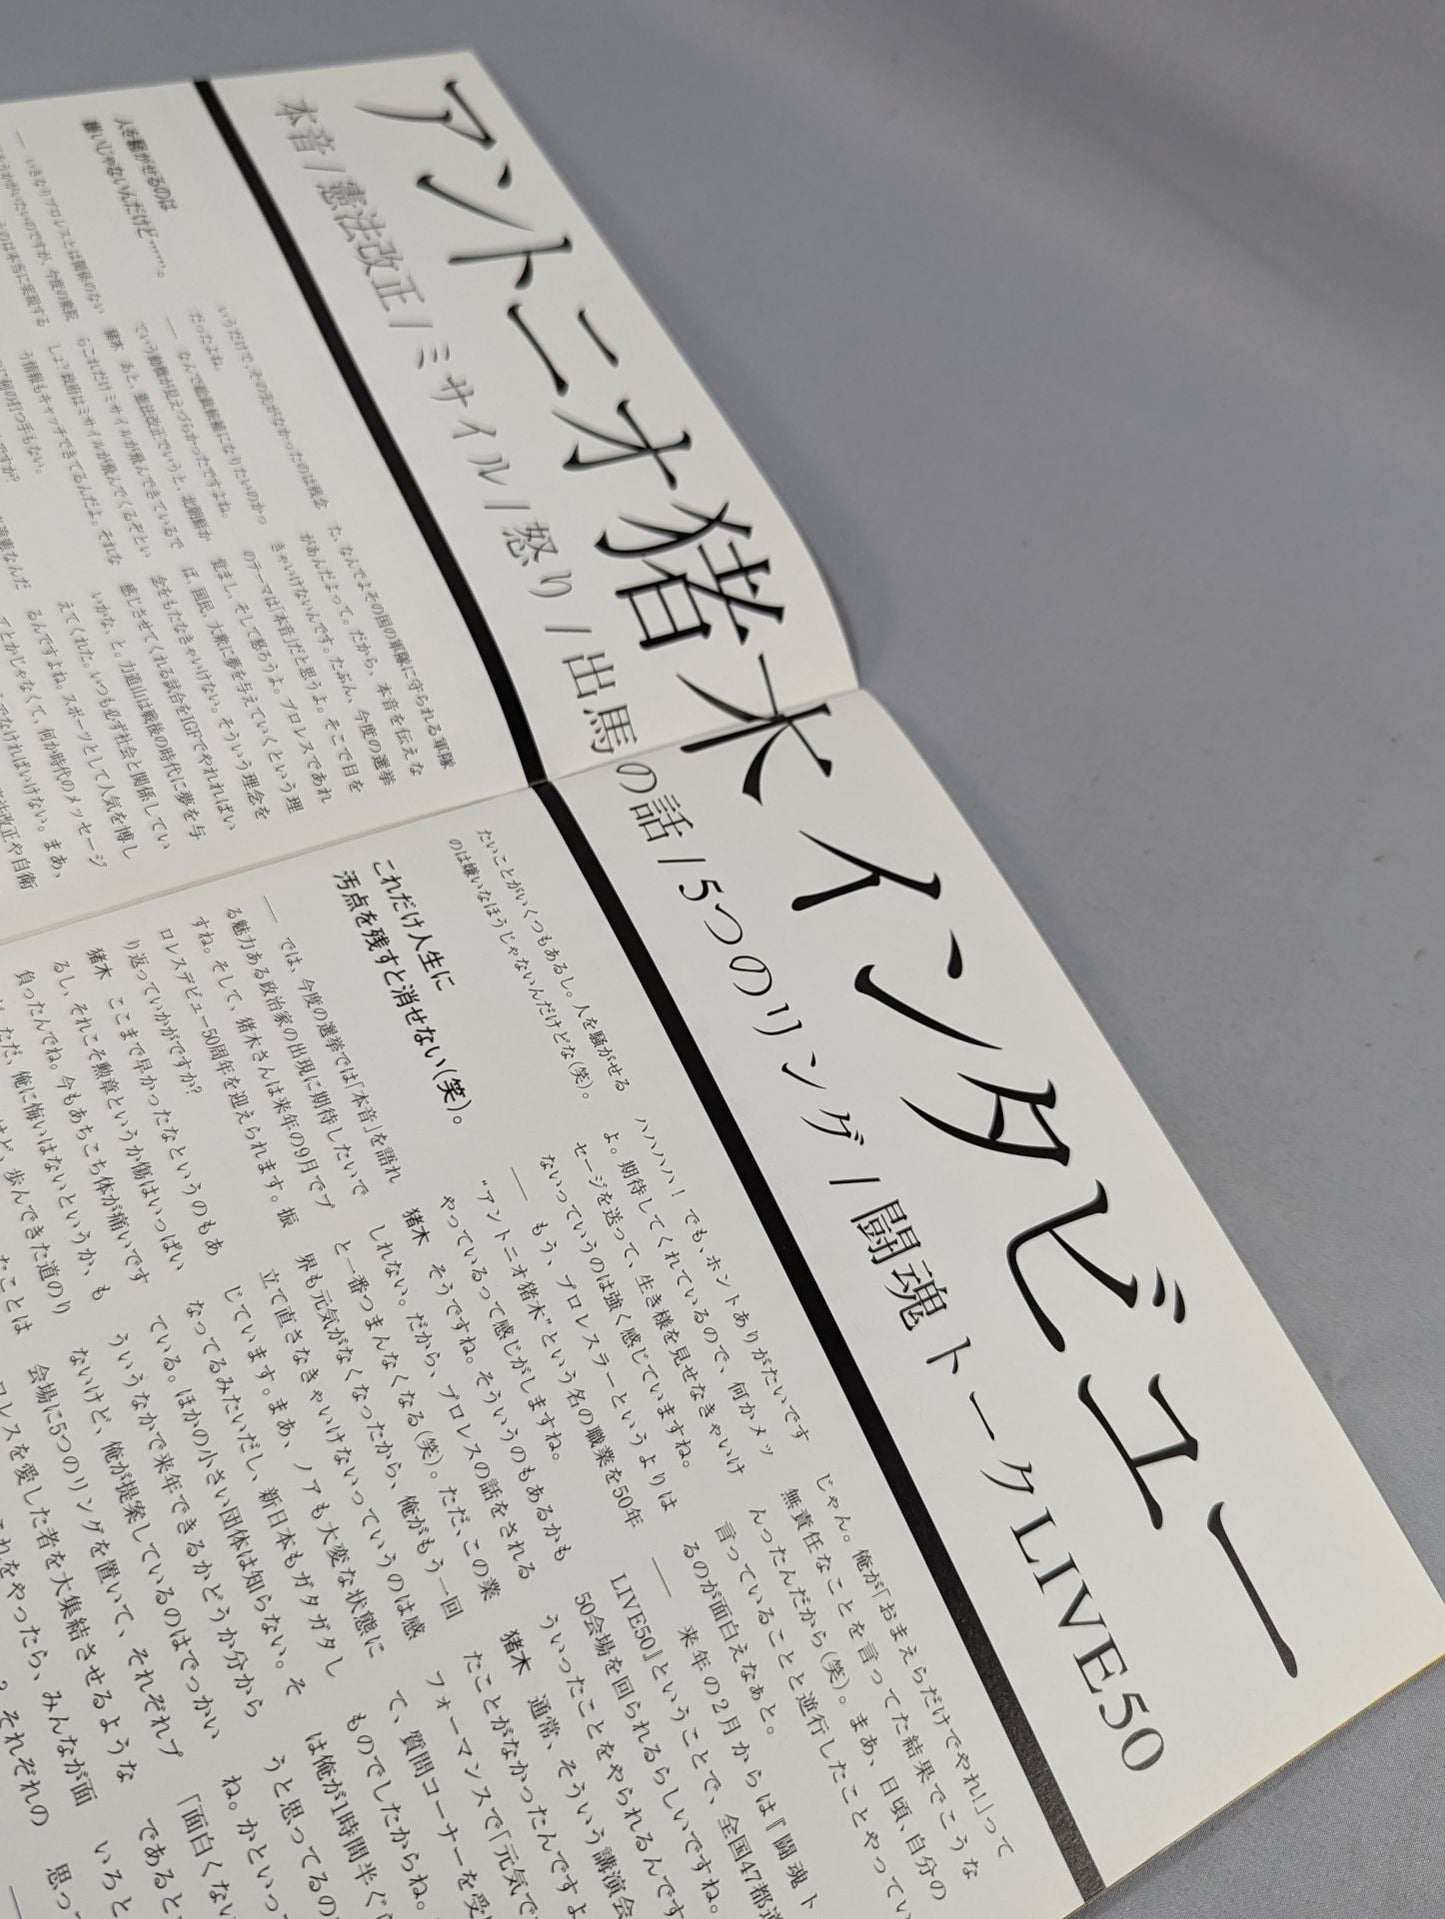 アントニオ猪木インタビュー
本音/憲法改正/ミサイル/怒り/出馬の話/5つのリング/闘魂トークLIVE50
人を騒がせるのは
嫌いじゃないんだけど……。
― いきなりプロレスとは関係のない
いうだけで、その先がなかったのは残念
だったよね。
― なんで総裁候補になりたいのかっ
ていう動機が見えづらかったですよね。
猪木 あと、憲法改正でいうと、北朝鮮か
らこれだけミサイルが飛んできているで
しょ?政府はミサイルが飛んでくるぞとい
う情報もキャッチできてるんだよ。それな
た、なんでよその国の軍隊に守られる軍隊
があんだよって。だから、本音を伝えな
きゃいけないんです。たぶん、今度の選挙
のテーマは「本音」だと思うよ。そこで目を
覚まし、そして怒ろうよ。プロレスであれ
ば、国民、大衆に夢を与えていくという理
念をもたなきゃいけない。そういう理念を
感じさせてくれる試合をIGFでやれればい
いかな、と。力道山は戦後の時代に夢を与
えてくれた。いつも必ず社会と関係してい
るんですよね。スポーツとして人気を博し
てとかじゃなくて、何か時代のメッセージ
たいことがいくつもあるし。人を騒がせる
のは嫌いなほうじゃないんだけどな(笑)。
これだけ人生に
汚点を残すと消せない(笑)。
― では、今度の選挙では「本音」を語れ
る魅力ある政治家の出現に期待したいで
すね。そして、猪木さんは来年の9月でプ
ロレスデビュー50周年を迎えられます。振
り返っていかがですか?
猪木 ここまで早かったなというのもあ
るし、それこそ勲章というか傷はいっぱい
負ったんでね。今もあちこち体が痛いです
し。ただ、俺に悔いはないというか、も
けど、歩んできた道のり
たことは
ハハハハ! でも、ホントありがたいです
よ。期待してくれているので、何かメッ
セージを送って、生き様を見せなきゃいけ
ないっていうのは強く感じていますね。
― もう、プロレスラーというよりは
“アントニオ猪木”という名の職業を50年
やっているって感じがしますね。
猪木 そうですね。そういうのもあるかも
しれない。だから、プロレスの話をされる
と一番つまんなくなる(笑)。ただ、この業
界も元気がなくなったから、俺がもう一回
立て直さなきゃいけないっていうのは感
じています。まあ、ノアも大変な状態に
なってるみたいだし、新日本もガタガタし
ている。ほかの小さい団体は知らない。そ
ういうなかで来年できるかどうか分から
ないけど、俺が提案しているのはでっかい
会場に5つのリングを置いて、それぞれプ
ロレスを愛した者を大集結させるような
それをやったら、みんなが面
?それぞれの
じゃん。俺が「おまえらだけでやれ!」って
無責任なことを言ってた結果でこうな
んったんだから(笑)。まあ、日頃、自分の
言っていることと逆行したことやってい
るのが面白えなあと。
― 来年の2月からは『闘魂ト
LIVE50』ということで、全国47都道
50会場を回られるらしいですね。
ういったことをやられるんです
猪木 通常、そういう講演会
たことがなかったんですよ
フォーマンスで「元気で
て、質問コーナーを受
ものでしたからね。
は俺が1時間半ぐら
うと思ってるの
ね。かといっ
「面白くない
であると
いろと
思っ